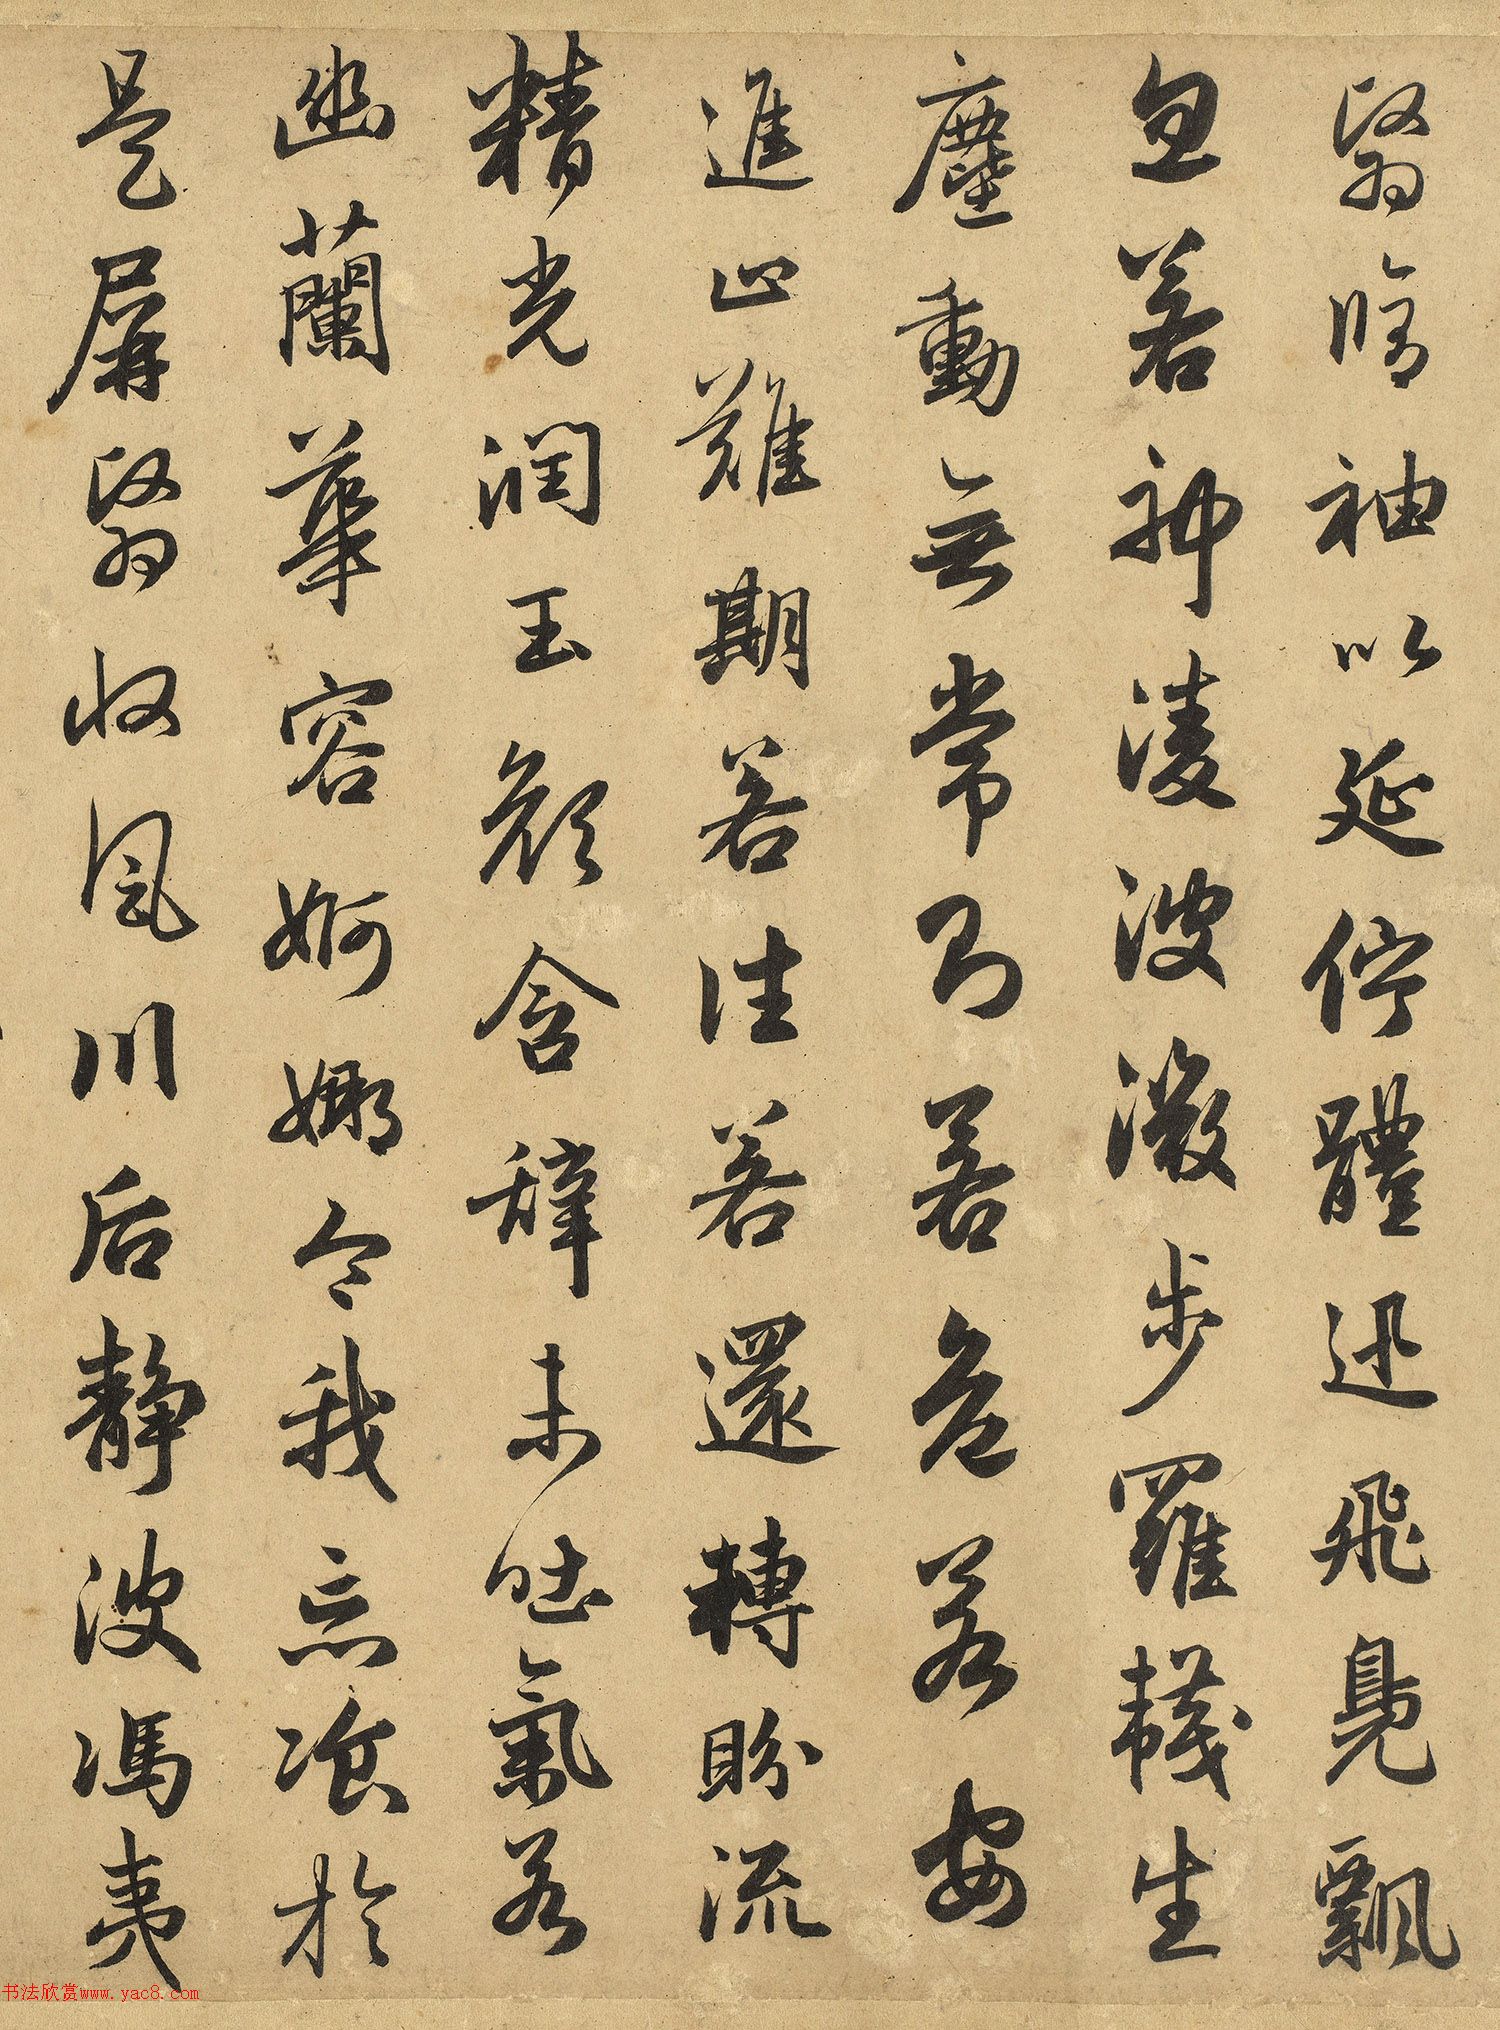 翳脩袖以延佇體迅飛鳧飄
忽若神淩波微步羅韈生
塵動無常則若危若安
進止難期若往若還轉盼流
精光潤玉顏含辭未吐氣若
幽蘭華容婀娜令我忘飡於
是屏翳收風川后静波馮夷
书法欣赏www.yac8.com